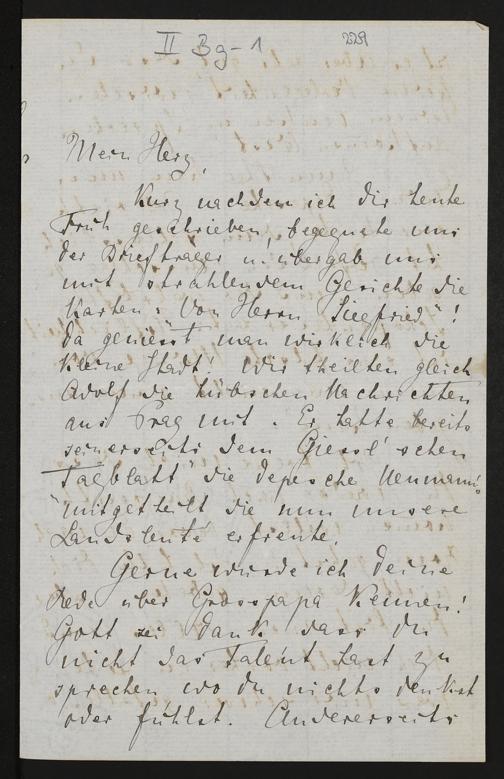 II Bg-1
229
Mein Herz,
Kurz nachdem ich dir heute
Früh geschrieben, begegnete mir
der Briefträger u. übergab mir
mit strahlendem Gesichte die
Karten: Von Herrn Siegfried"!
da geniesst man wirklich die
kleine Stadt! Wir theilten gleich
Adolf die hübschen Nachrichten
aus Prag mit. Er hatte bereits
seinerseits dem Giessl'schen
Tagblatt" die depesche Neumann's
"mitgetheilt die nun unsere
Landsleute erfreute.
Gerne würde ich deine
Rede über Grosspapa kennen!
Gott sei dank dass du
nicht das Talent hast zu
sprechen wo du nichts denkst
oder fühlst. Andererseits